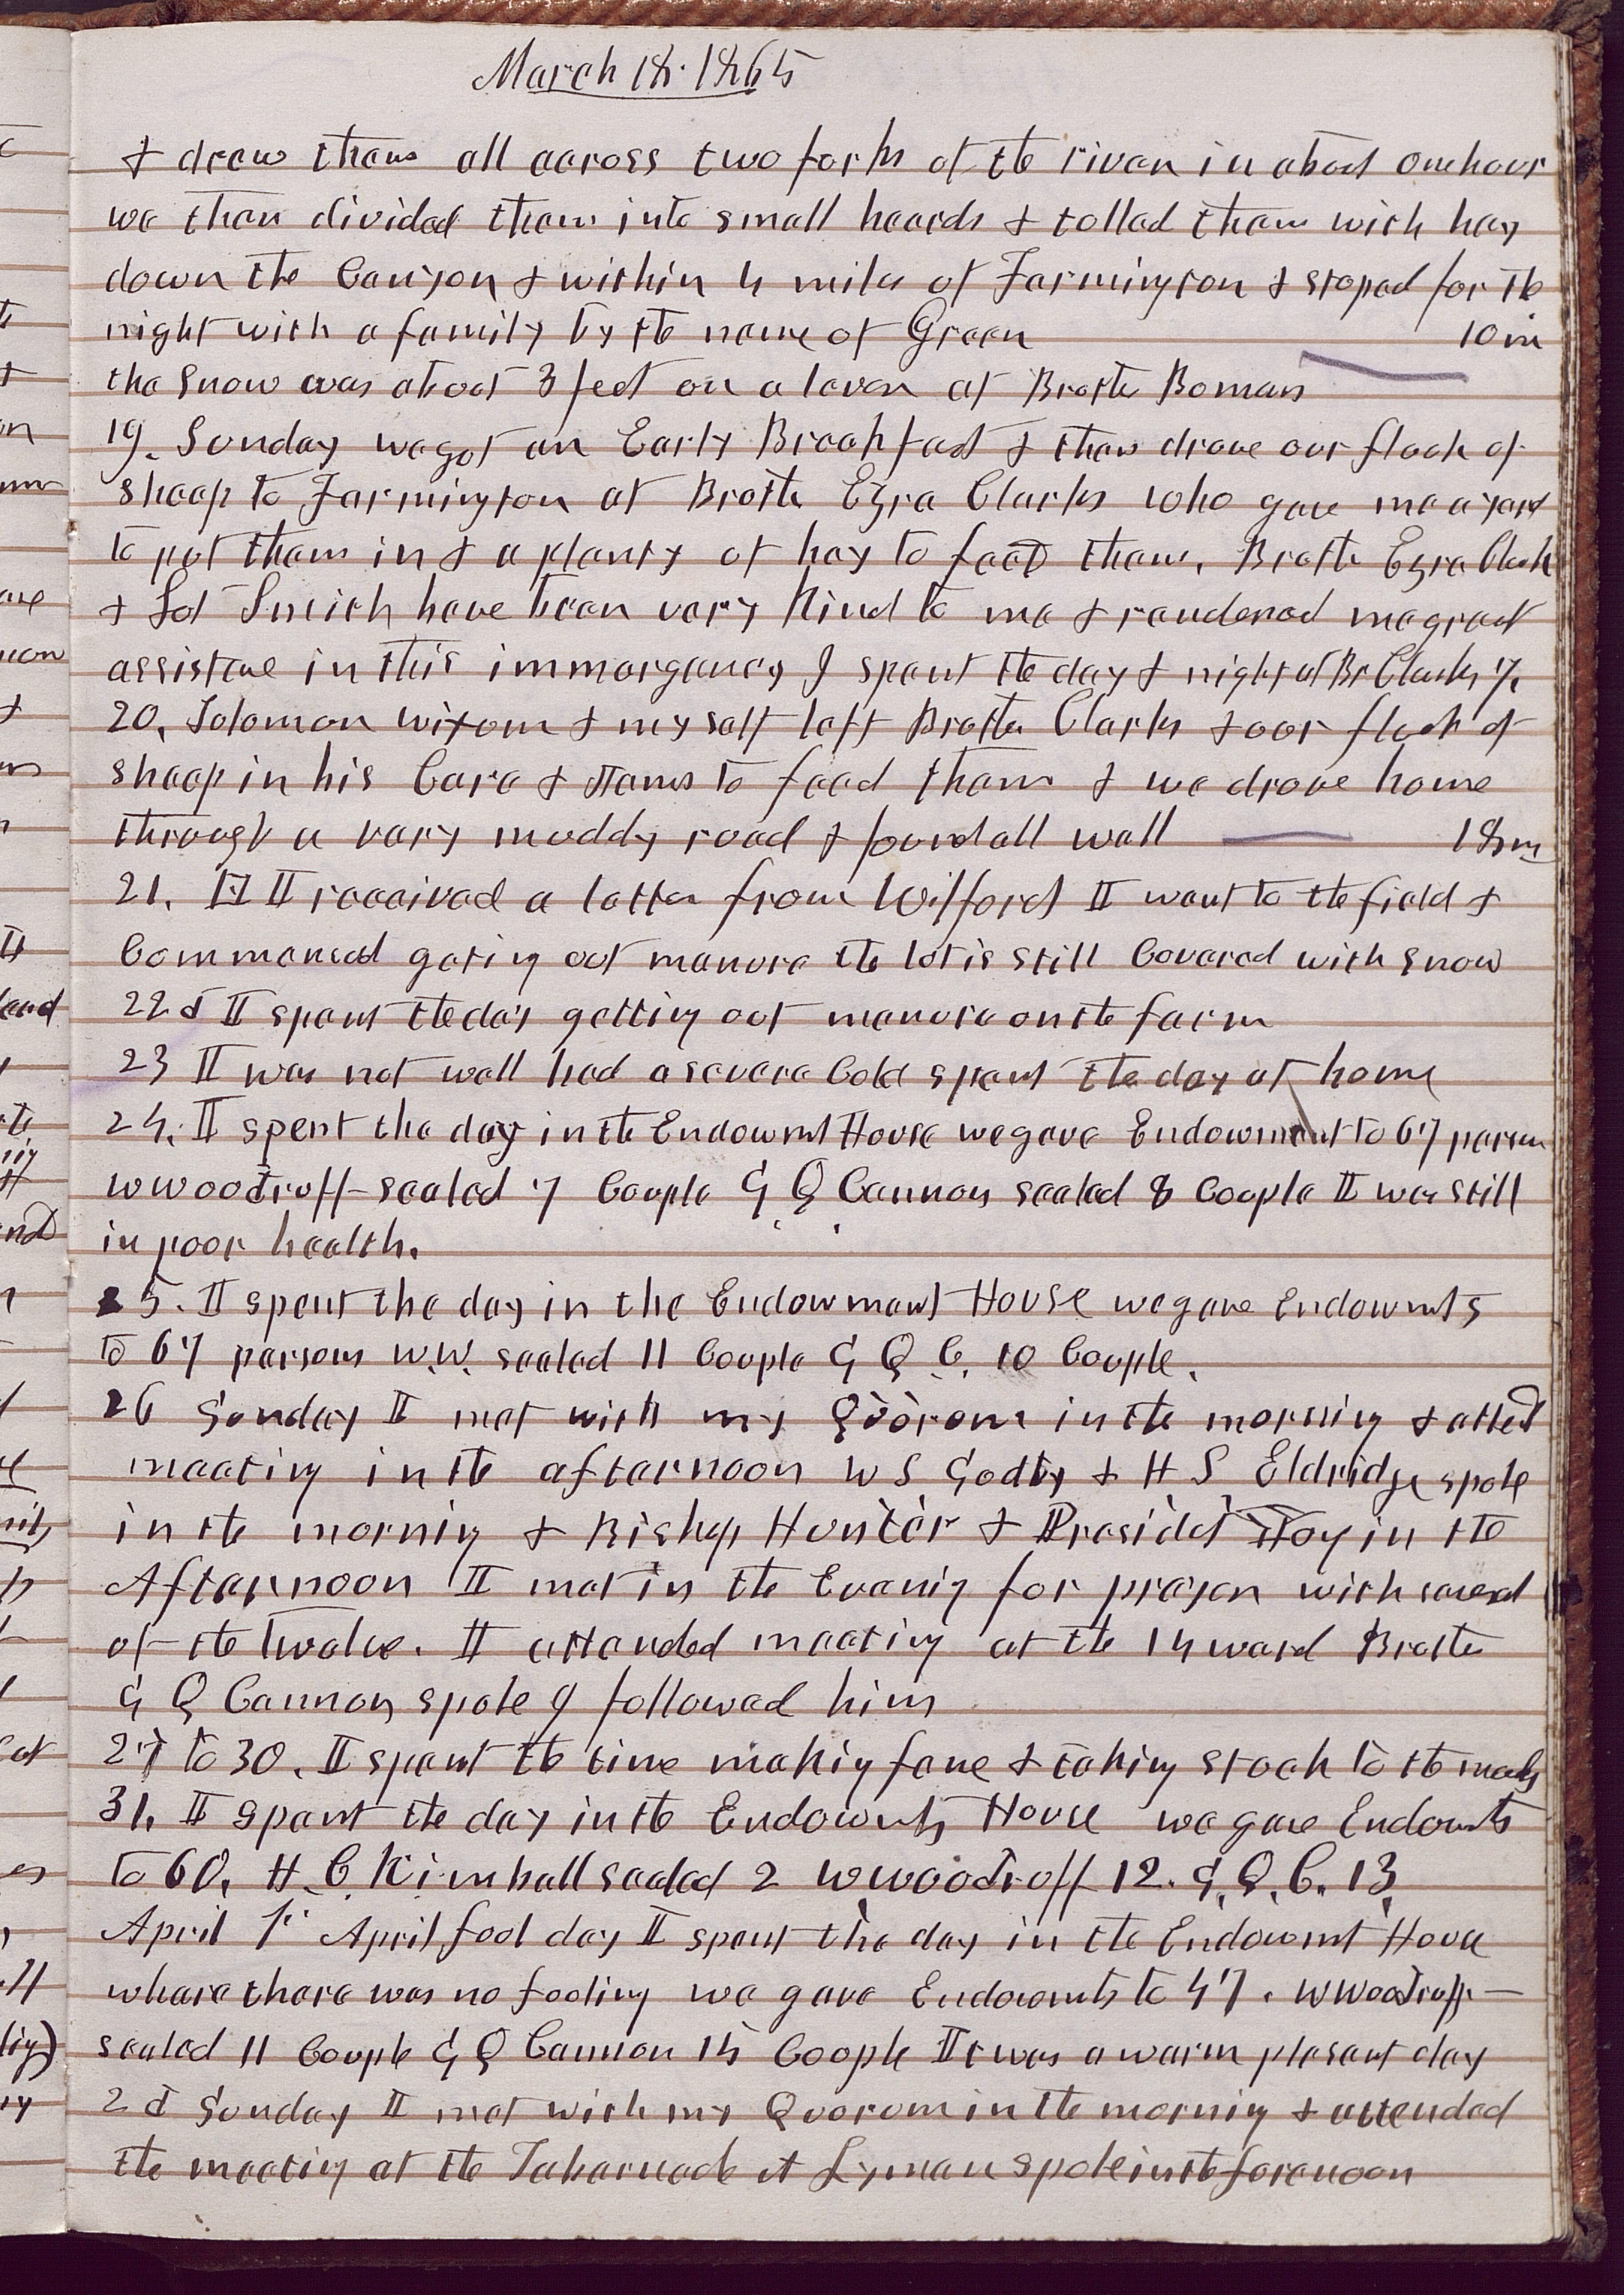 March 18. 1865
& drew them all across two forks of the river in about one hour
we then divided them into small heards & tolled them with hay
down the Canyon & within 4 miles of Farmington & stoped for the
night with a family by the name of Green 10 m
the snow was about 3 feet on a leven at Brother Bomans
19. Sunday we got an Early Breakfast & then drove our flock of
sheep to Farmington at Brother Ezra Clarks who gave me a yard
to put them in & a plenty of hay to feed them. Brother Ezra Clark
& Lot Smith have been very kind to me & rendered me great
assistance in this immergency I spent the day & night at Br Clarks 7.
20. Solomon wixom & myself left Brother Clarks & our flock of
sheep in his Care & items to feed them & we drove home
through a very muddy road & found all well 18 m
21. I received a letter from Wilford I went to the field &
Commenced geting out manure the lot is still Covered with snow
22d I spent the day getting out manure on the farm
23 I was not well had a severe Cold spent the day at home
24. I spent the day in the Endowmt House we gave Endowment to 67 person
W Woodruff sealed 7 Couple G Q Cannon sealed 8 Couple I was still
in poor health.
25. I spent the day in the Endowment House we gave Endowmts
to 67 persons W.W. sealed 11 Couple G Q C. 10 Couple.
26 Sunday I met with my Quorom in the morning & atted
meeting in the afternoon W S Godby & H S Eldridge spoke
in the mornig & Bishop Hunter & Presidet Hoy in the
Afternoon I met in the Evenig for prayer with several
of the Twelve. I attended meeting at the 14 ward Brother
G Q Cannon spoke I followed him
27 to 30. I spent the time makig fence & takig stock to the
31. I spent the day in the Endowmts House we gave Endowmts
to 60. H. C. Kimball sealed 2 W Woodruff 12. G. Q. C. 13
April 1st April fool day I spent the day in the Endowmt House
where there was no fooling we gave Endowmts to 47. W Woodruff
sealed 11 Couple G Q Cannon 15 Couple It was a warm plesant day
2d Sunday I met with my Quorom in the mornig & attended
the meeting at the Tabernacle A Lyman spoke in the forenoon